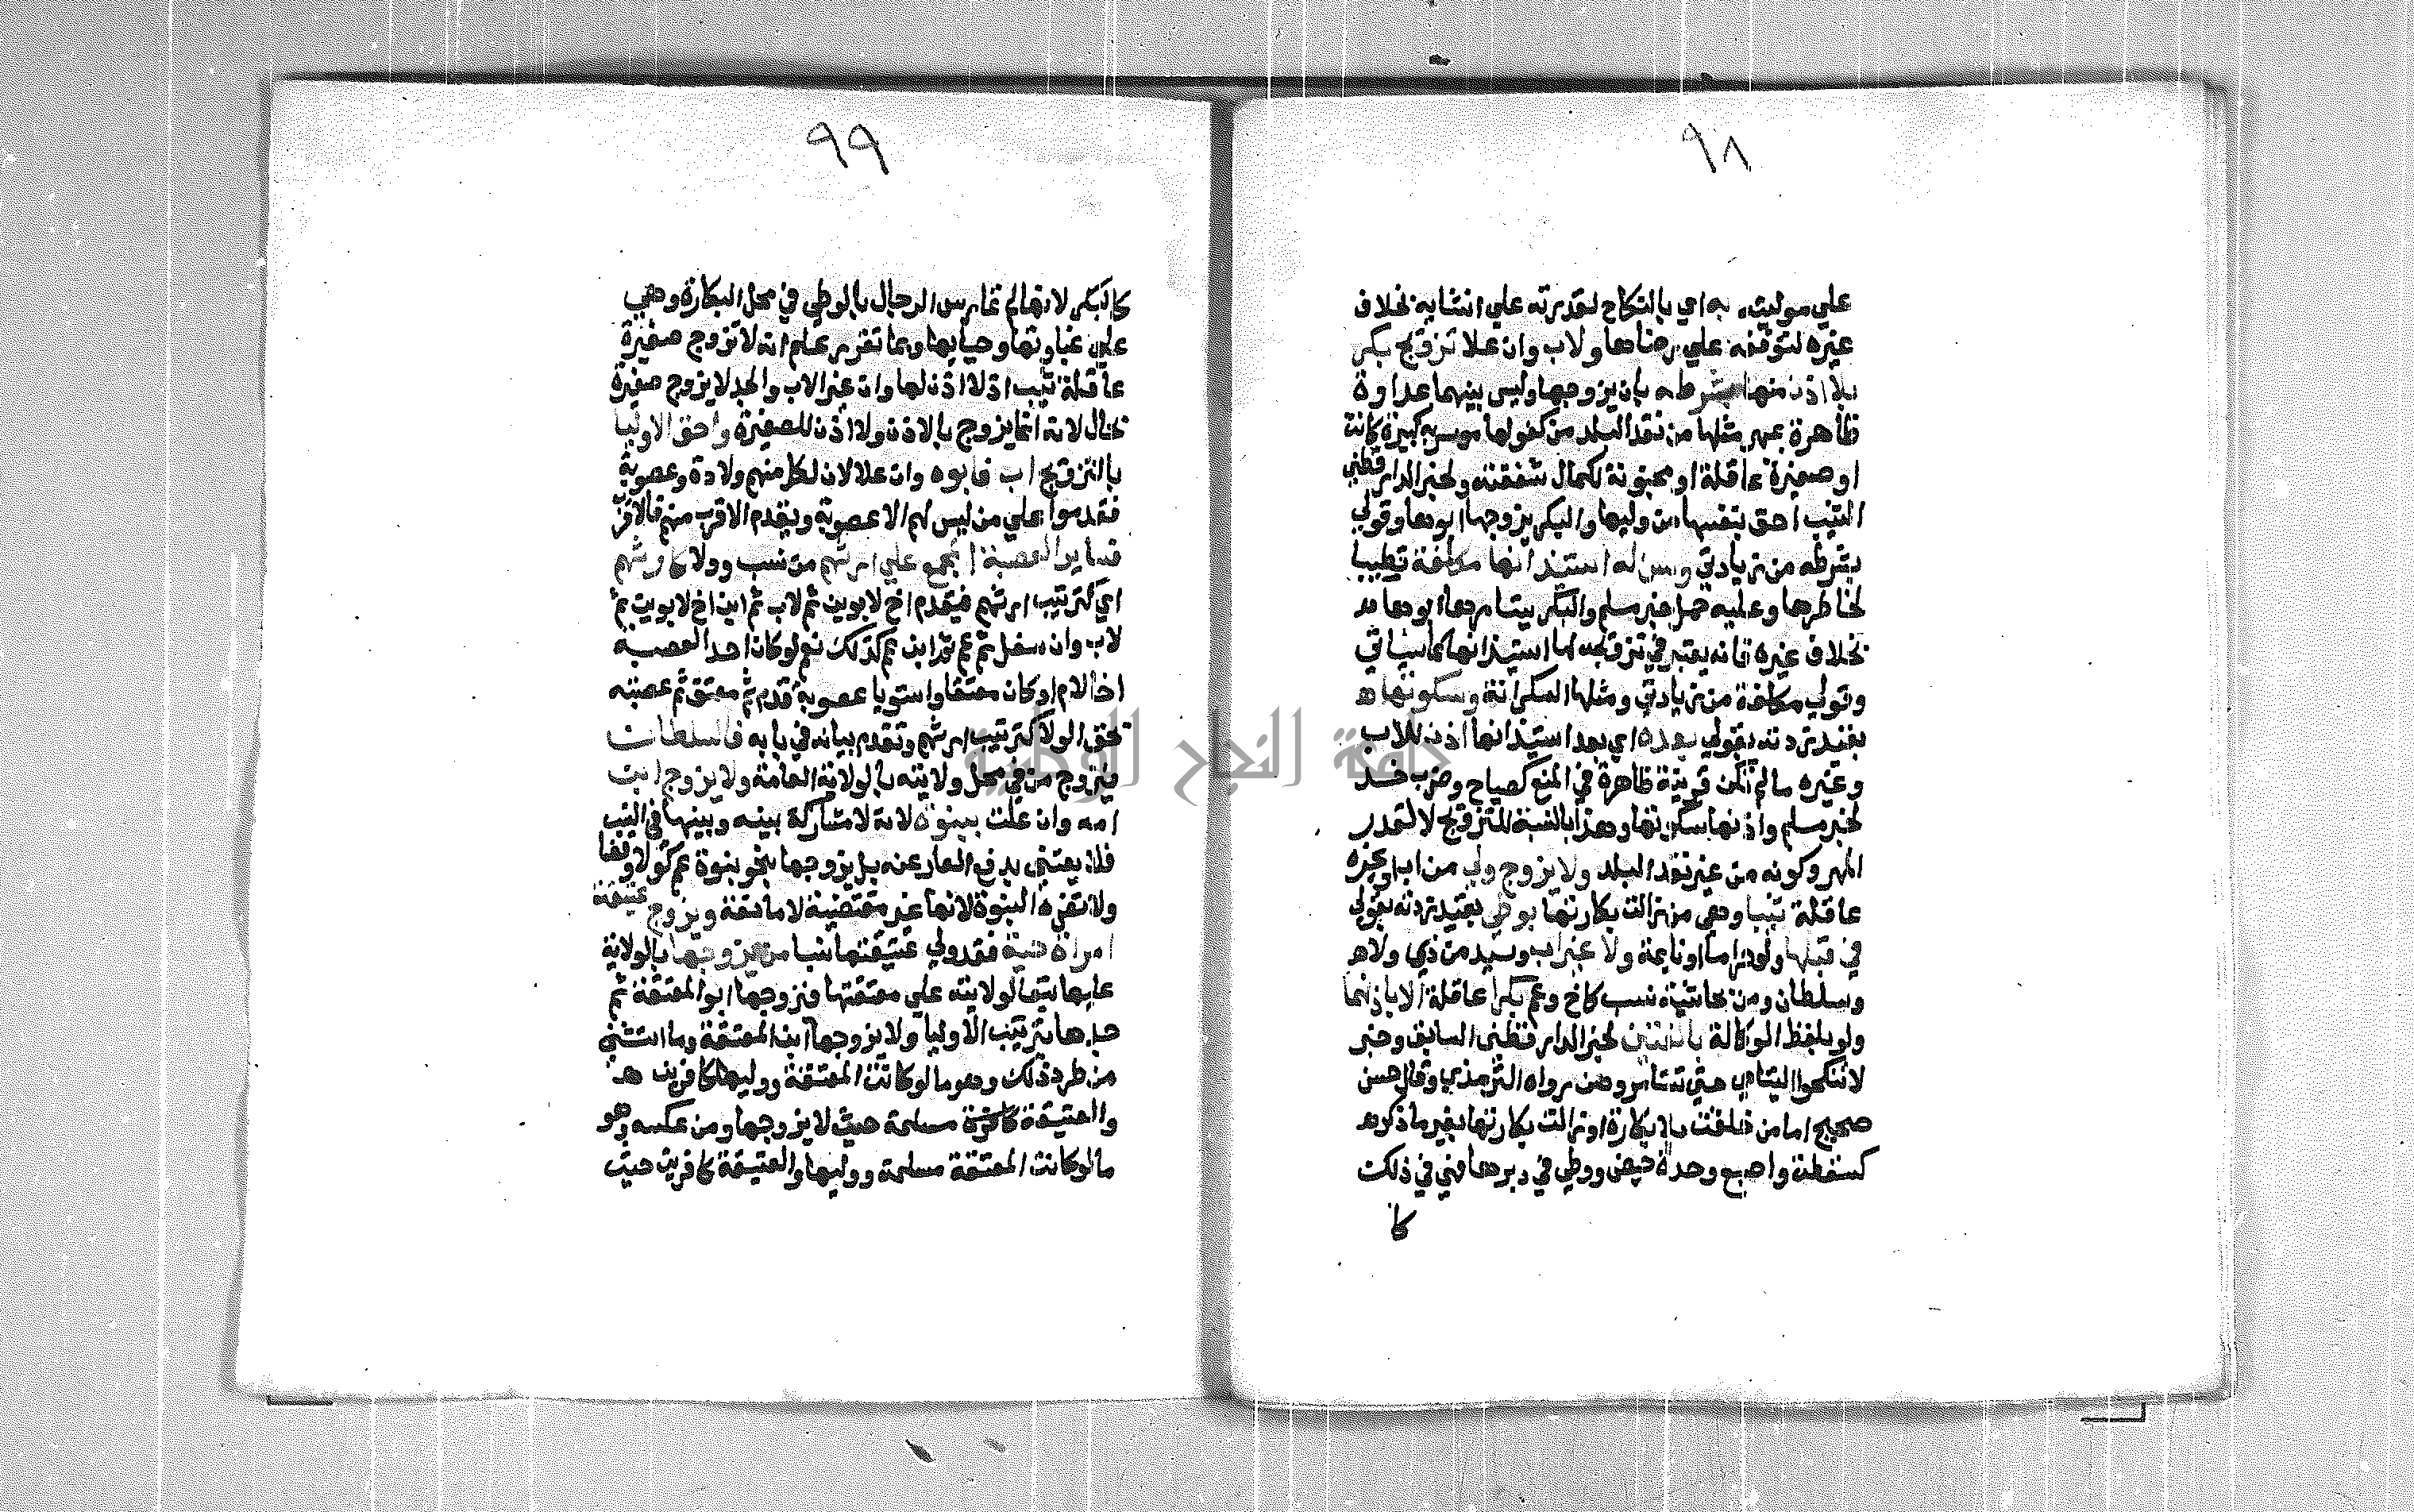 ٩٨
علي موليته به اي بالنكاح لقدرته علي انشايه بخلاف
غيره لتوقفه علي رضاها ولاب وان علا تزويج بكر
بلا اذن منها بشرطه بان يزوجها وليس بينهما عداوة
ظاهرة بمهر مثلها من نقد البلد من كفو لها موسر به كبيرة كانت
او صغيرة عاقلة او مجنونة لكمال شفقته ولخبر الدار قطني
الثيب احق بنفسها من وليها والبكر يزوجها ابوها وقولي
بشرطه من زيادتي وسن له استيذانها مكلفة تطييبا
لخاطرها وعليه حمل خبر مسلم والبكر يستامرها ابوها
بخلاف غيره فانه يعتبر في تزويجه لها استيذانها كما سياتي
وقولي مكلفة من زيادتي ومثلها السكرانة وسكوتها
بقيد زدته بقولي بعده اي بعد استيذانها اذن للاب
وغيره ما لم تكن قرينة ظاهرة في المنع كصياح وضرب خد
لخبر مسلم واذنها سكوتها وهذا بالنسبة للتزويج لا لقدر
المهر وكونه من غير نقد البلد ولا يزوج ولي من اب او غيره
عاقلة ثيبا وهي من زالت بكارتها بوطي بقيد زدته بقولي
في قبلها ولو حراما او نايمة ولا غير اب وسيد من ذي ولا
وسلطان ومن بحاشية نسب كاخ وعم بكرا عاقلة الا باذنهما
ولو بلفظ الوكالة بالغتين لخبر الدار قطني السابق وخبر
لا تنكحوا اليتامي حتي تستامروهن رواه الترمذي وقال حسن
صحيح اما من خلقت بلا بكارة او زالت بكارتها بغير ما ذكر
كسقطة واصبع وحدة حيض ووطي في دبرها فهي في ذلك
كا
٩٩
كالبكر لانها لم تمارس الرجال بالوطي في محل البكارة وهي
علي غباوتها وحيايها وبما تقرر علم انه لا تزوج صغيرة
عاقلة ثيب اذ لا اذن لها وان غير الاب والجد لا يزوج صغيرة
بحال لانه انما يزوج بالاذن ولا اذن للصغيرة واحق الاوليا
بالتزويج اب فابوه وان علا لان لكل منهم ولادة وعصوبة
فقدموا علي من ليس لهم الا عصوبة ويقدم الاقرب منهم فالاقرب
فساير العصبة المجمع علي ارثهم من نسب وولا كارثهم
اي كترتيب ارثهم فيقدم اخ لابوين ثم لاب ثم ابن اخ لابوين ثم
لاب وان سفل ثم عم ثم ابن عم كذلك نعم لو كان احد العصبة
اخا لام او كان معتقا واستويا عصوبة قدم ثم معتق ثم عصبته
بحق الولا كترتيب ارثهم وتقدم بيانه في بابه فالسلطان
يتزوج من في محل ولايته بالولاية العامة ولا يزوج ابن
امه وان علت ببنوة لانه لا مشاركة بينه وبينها في النسب
فلا يعتني بدفع العار عنه بل يزوجها بنحو بنوة عم كولا وقضا
ولا تضره البنوة لانها غير مقتضية لا مانعة ويزوج عتيقة
امراة حية فقد ولي عتيقتها نسبا من يزوجها بالولاية
عليها تبعا لولايته علي معتقتها فيزوجها ابو المعتقة ثم
جدها بترتيب الاوليا ولا يزوجها ابن المعتقة وما استثني
من طرد ذلك وهو ما لو كانت المعتقة ووليها كافرين
والعتيقة مسلمة حيث لا يزوجها ومن عكسه وهو
ما لو كانت المعتقة مسلمة ووليها والعتيقة كافرين حيث
جامعة النجاح الوطنية